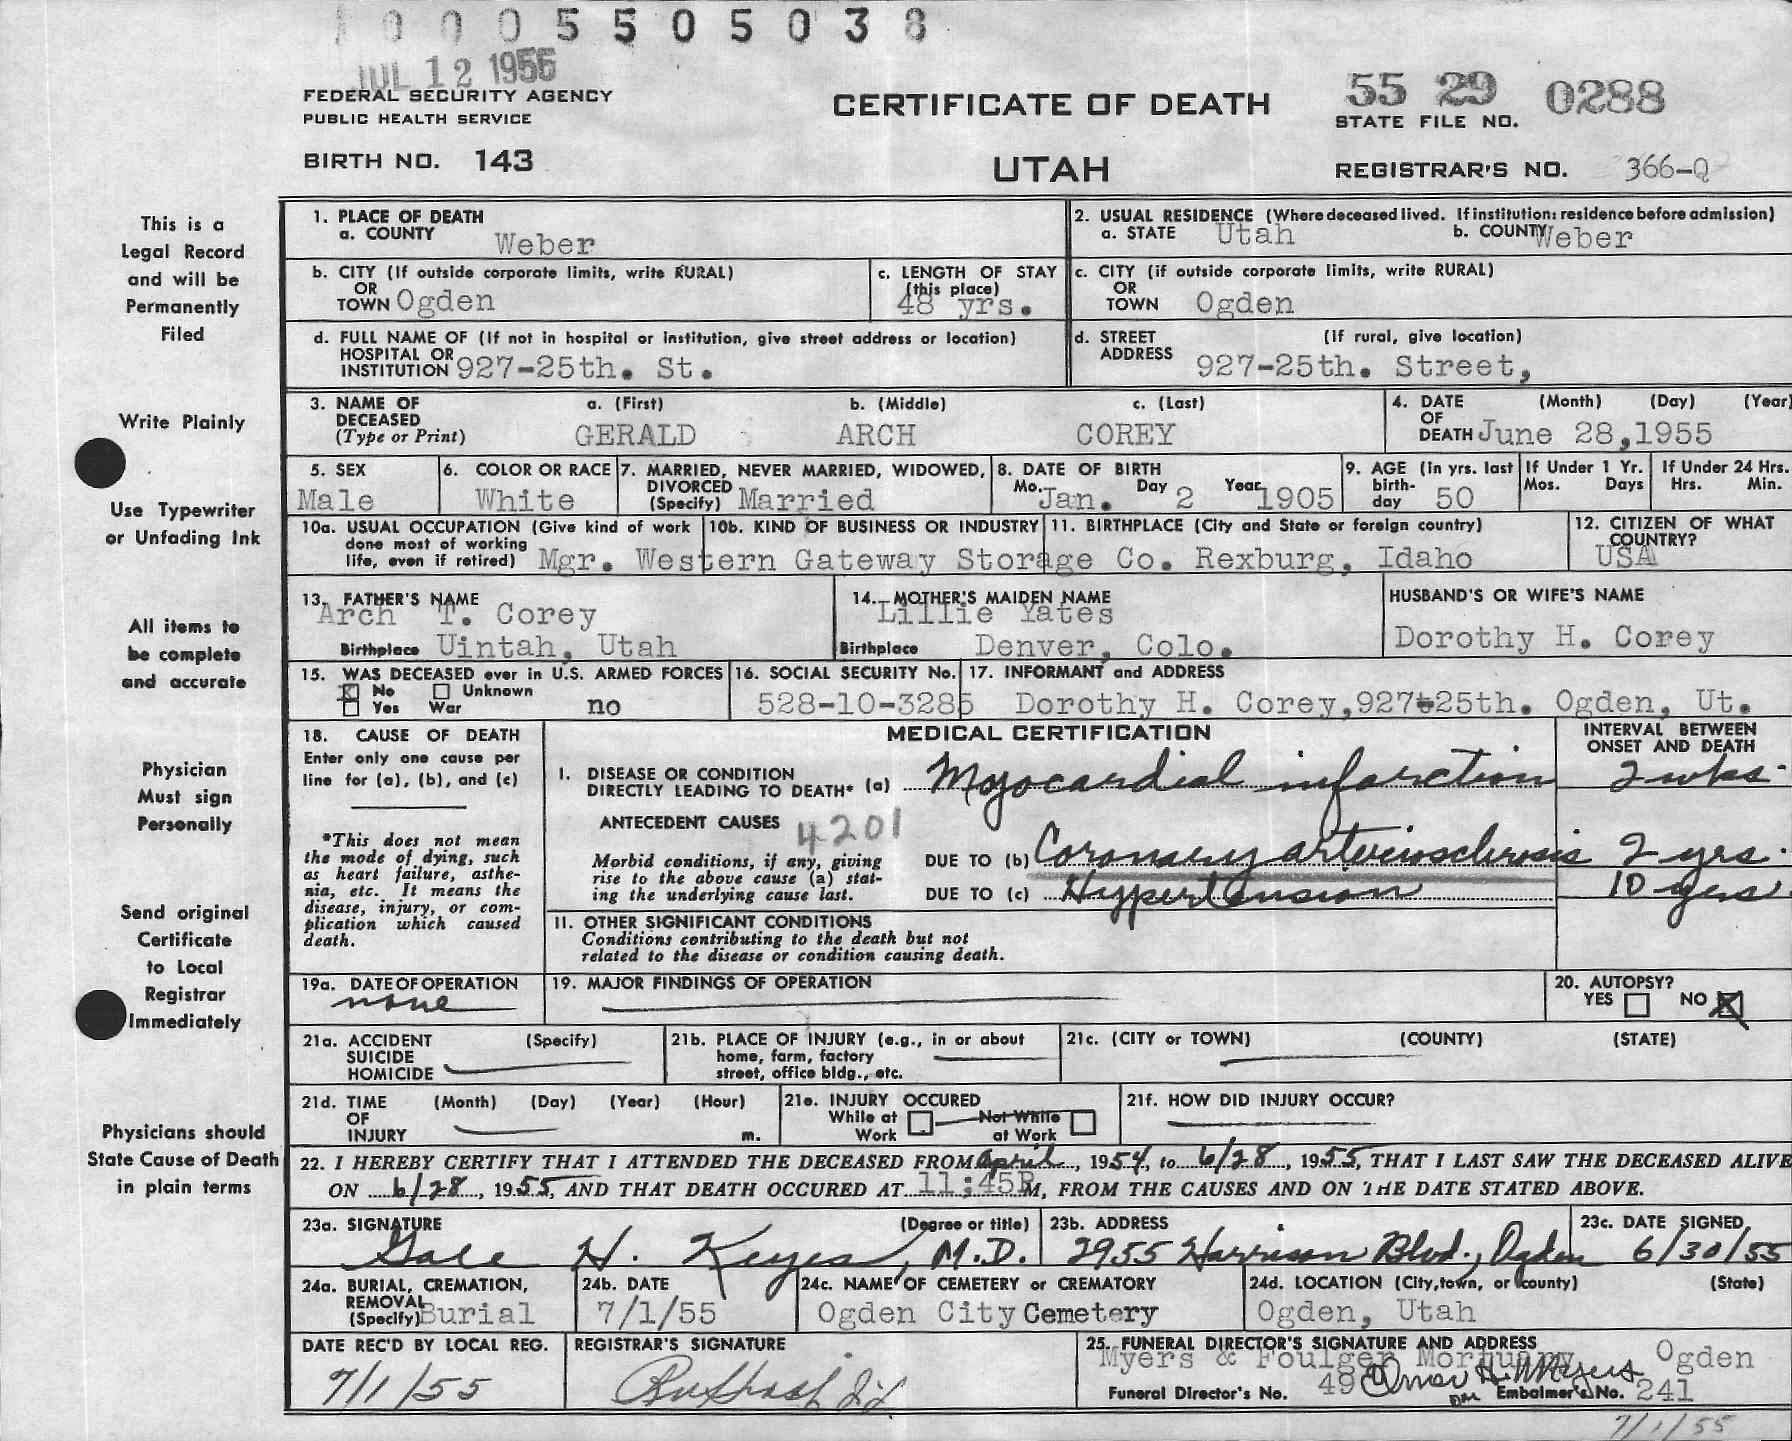 0005505038
JUL 12 1955
FEDERAL SECURITY AGENCY
PUBLIC HEALTH SERVICE
BIRTH NO. 143
CERTIFICATE OF DEATH
UTAH
55 29 0288
STATE FILE NO.
REGISTRAR'S NO. 366-Q
This is a
Legal Record
and will be
Permanently
Filed
Write Plainly
Use Typewriter
or Unfading Ink
All items to
be complete
and accurate
Physician
Must sign
Personally
Send original
Certificate
to Local
Registrar
Immediately
Physicians should
State Cause of Death
in plain terms
1. PLACE OF DEATH
a. COUNTY Weber
2. USUAL RESIDENCE (Where deceased lived. If institution: residence before admission)
a. STATE Utah b. COUNTY Weber
b. CITY (If outside corporate limits, write RURAL)
OR
TOWN Ogden
c. LENGTH OF STAY
(this place)
48 yrs.
c. CITY (if outside corporate limits, write RURAL)
OR
TOWN Ogden
d. FULL NAME OF (If not in hospital or institution, give street address or location)
HOSPITAL OR
INSTITUTION 927-25th. St.
d. STREET (If rural, give location)
ADDRESS 927-25th. Street,
3. NAME OF
DECEASED
(Type or Print)
a. (First) b. (Middle) c. (Last)
GERALD ARCH COREY
4. DATE (Month) (Day) (Year)
OF
DEATH June 28,1955
5. SEX
Male
6. COLOR OR RACE
White
7. MARRIED, NEVER MARRIED, WIDOWED,
DIVORCED
(Specify) Married
8. DATE OF BIRTH
Mo. Jan. Day 2 Year 1905
9. AGE (In yrs. last
birth-
day 50
If Under 1 Yr.
Mos. Days
If Under 24 Hrs.
Hrs. Min.
10a. USUAL OCCUPATION (Give kind of work
done most of working
life, even if retired)
10b. KIND OF BUSINESS OR INDUSTRY
Mgr. Western Gateway Storage Co.
11. BIRTHPLACE (City and State or foreign country)
Rexburg, Idaho
12. CITIZEN OF WHAT
COUNTRY?
USA
13. FATHER'S NAME
Arch T. Corey
Birthplace Uintah, Utah
14. MOTHER'S MAIDEN NAME
Lillie Yates
Birthplace Denver, Colo.
HUSBAND'S OR WIFE'S NAME
Dorothy H. Corey
15. WAS DECEASED ever in U.S. ARMED FORCES
No Unknown
Yes War no
16. SOCIAL SECURITY No.
528-10-3285
17. INFORMANT and ADDRESS
Dorothy H. Corey,927-25th. Ogden, Ut.
18. CAUSE OF DEATH
Enter only one cause per
line for (a), (b), and (c)
*This does not mean
the mode of dying, such
as heart failure, asthe-
nia, etc. It means the
disease, injury, or com-
plication which caused
death.
MEDICAL CERTIFICATION
INTERVAL BETWEEN
ONSET AND DEATH
I. DISEASE OR CONDITION
DIRECTLY LEADING TO DEATH* (a) Myocardial infarction 2 wks.
ANTECEDENT CAUSES 4201
Morbid conditions, if any, giving
rise to the above cause (a) stat-
ing the underlying cause last.
DUE TO (b) Coronary arteriosclerosis 2 yrs.
DUE TO (c) Hypertension 10 yrs.
II. OTHER SIGNIFICANT CONDITIONS
Conditions contributing to the death but not
related to the disease or condition causing death.
19a. DATE OF OPERATION
none
19. MAJOR FINDINGS OF OPERATION
20. AUTOPSY?
YES NO
21a. ACCIDENT (Specify)
SUICIDE
HOMICIDE
21b. PLACE OF INJURY (e.g., in or about
home, farm, factory
street, office bldg., etc.
21c. (CITY or TOWN) (COUNTY) (STATE)
21d. TIME (Month) (Day) (Year) (Hour)
OF
INJURY m.
21e. INJURY OCCURED
While at Not While
Work at Work
21f. HOW DID INJURY OCCUR?
22. I HEREBY CERTIFY THAT I ATTENDED THE DECEASED FROM April, 1954, to 6/28, 1955, THAT I LAST SAW THE DECEASED ALIVE
ON 6/28, 1955, AND THAT DEATH OCCURED AT 11:45P M, FROM THE CAUSES AND ON THE DATE STATED ABOVE.
23a. SIGNATURE (Degree or title)
Gale H. Keyes, M.D.
23b. ADDRESS
2955 Harrison Blvd., Ogden
23c. DATE SIGNED
6/30/55
24a. BURIAL, CREMATION,
REMOVAL
(Specify) Burial
24b. DATE
7/1/55
24c. NAME OF CEMETERY or CREMATORY
Ogden City Cemetery
24d. LOCATION (City, town, or county) (State)
Ogden, Utah
DATE REC'D BY LOCAL REG.
7/1/55
REGISTRAR'S SIGNATURE
25. FUNERAL DIRECTOR'S SIGNATURE AND ADDRESS
Myers & Foulger Mortuary Ogden
Funeral Director's No. 49 Embalmer's No. 241
7/1/55